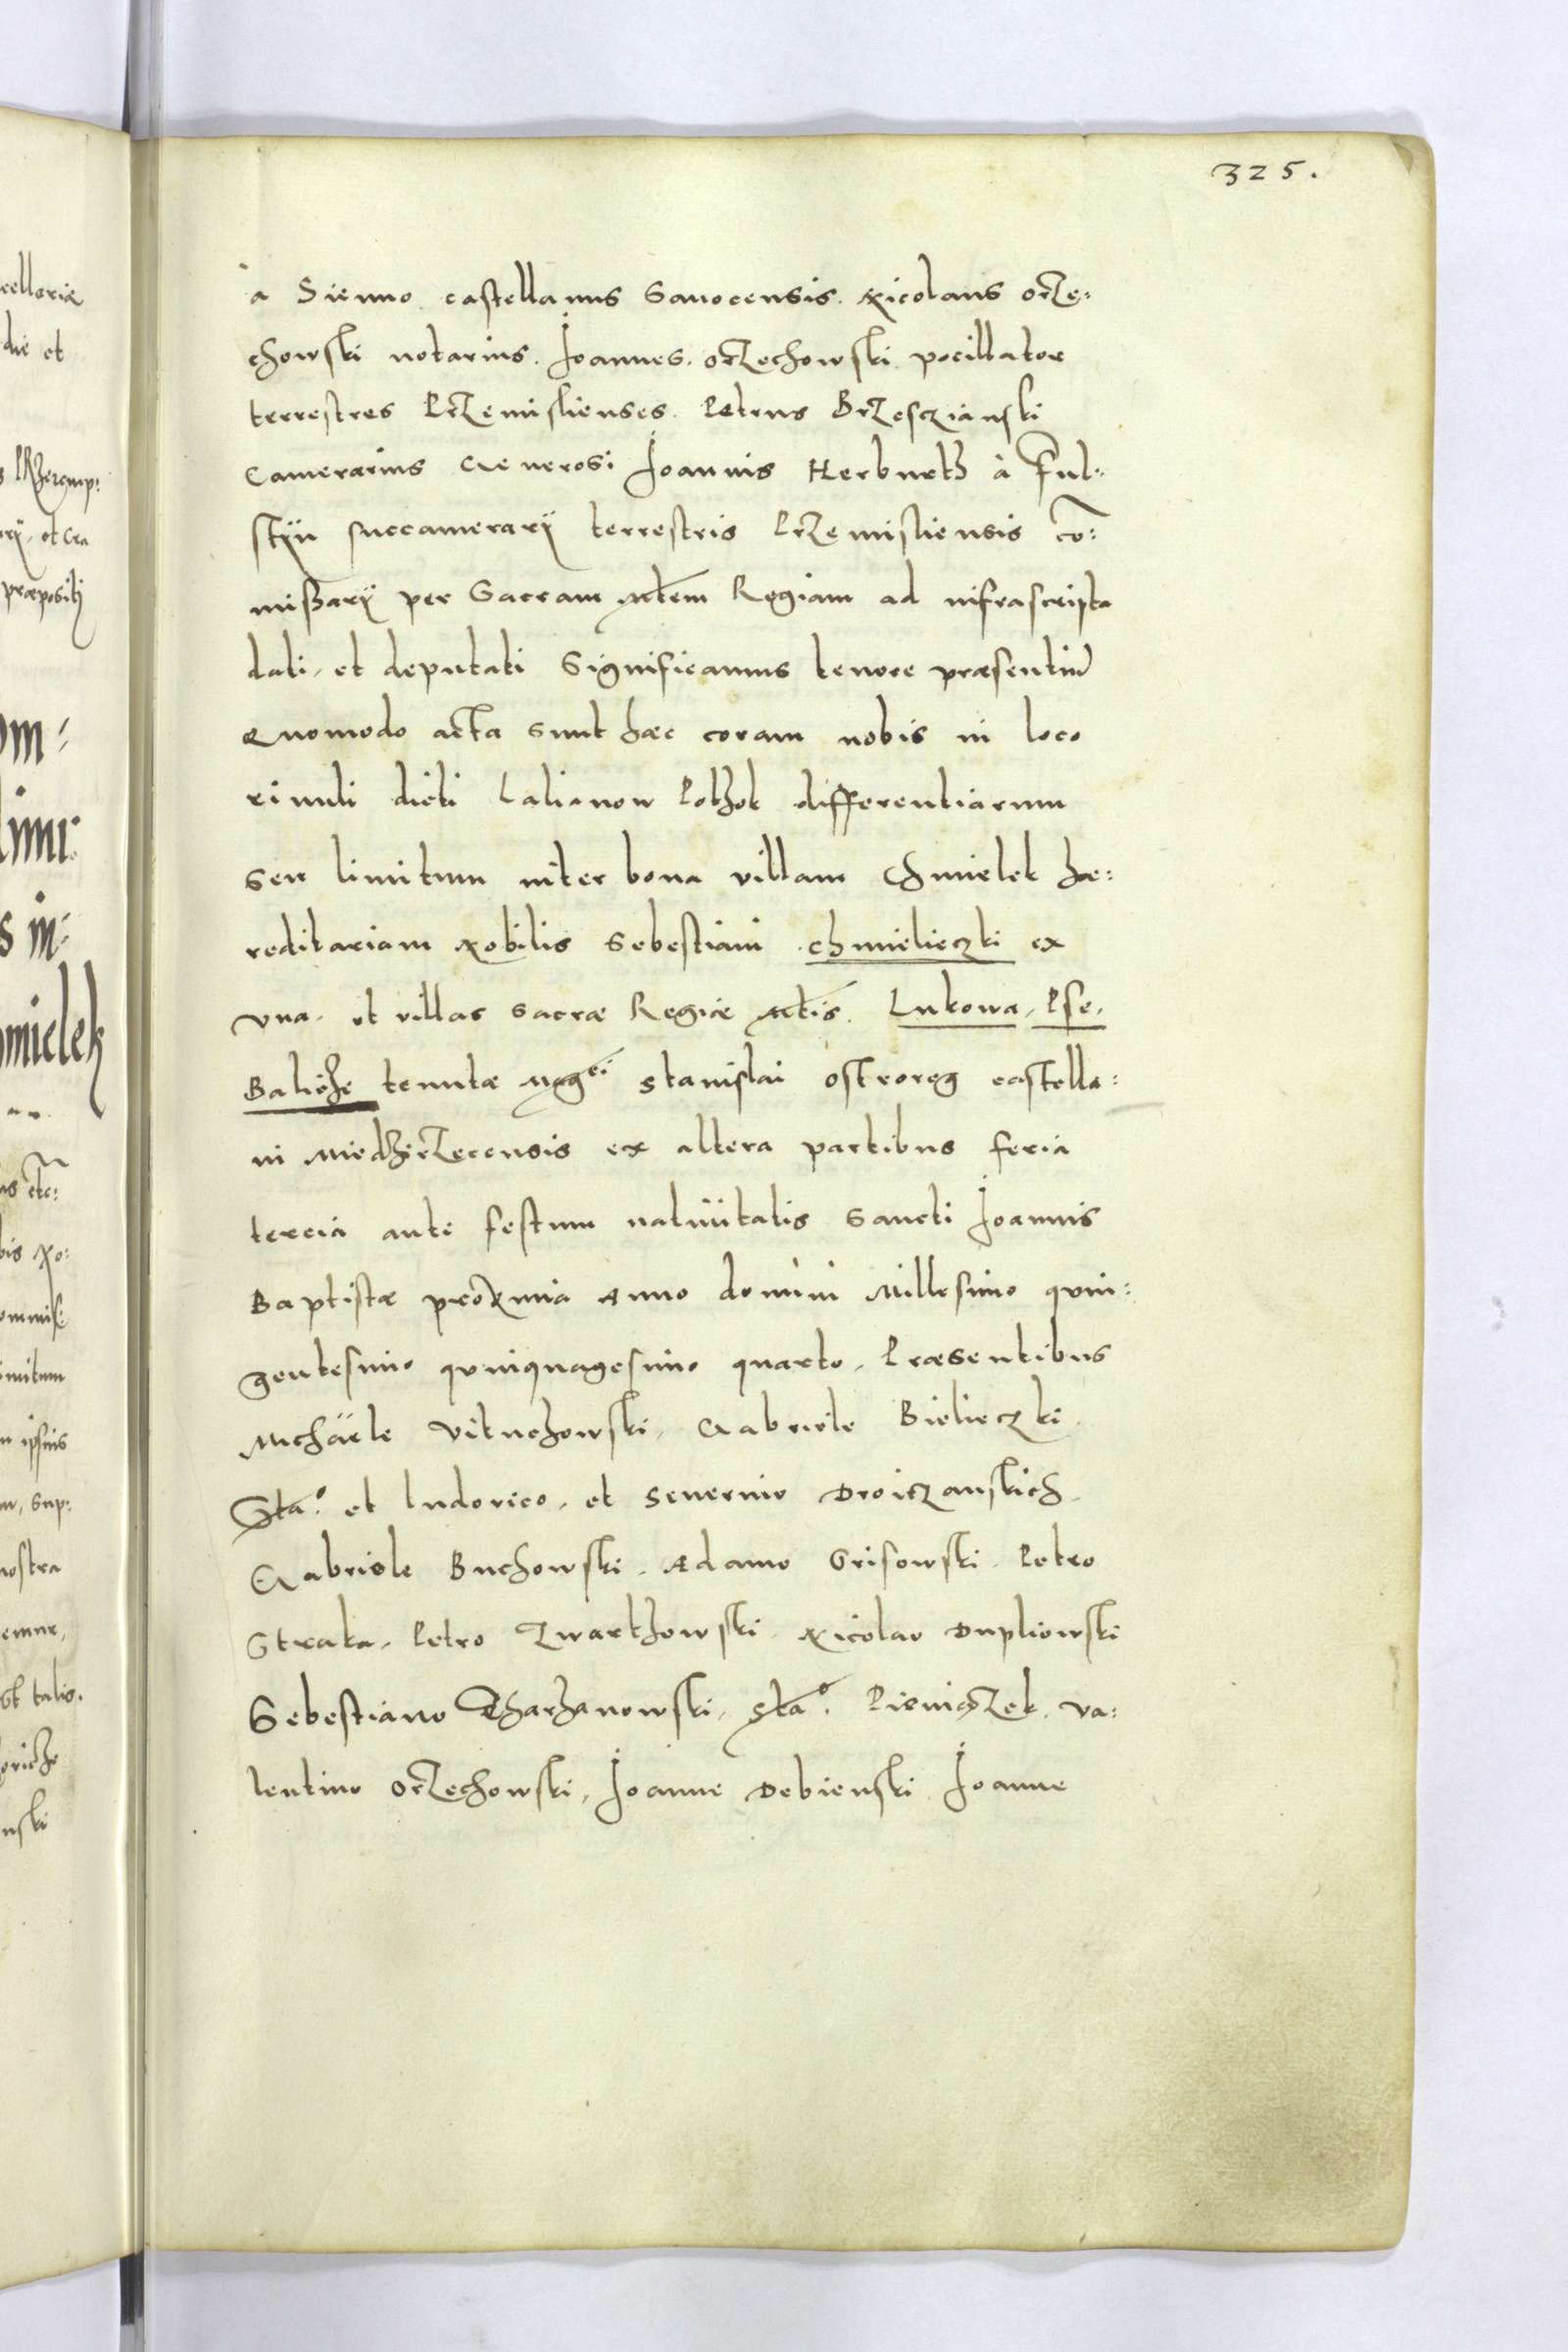 325.
a Sienno castellanus Sanocensis. Nicolaus orze:
chowski notarius. Joannes. orzechowski pocillator
terrestres Przemislienses. Petrus Brzesczianski
Camerarius Generosi Joannis Herburth à Ful:
stijn succamerarij terrestris Przemisliensis co:
mißarij per Sacram Mtem Regiam ad infrascripta
dati, et deputati Significamus tenore præsentiu
Quomodo acta sunt hæc coram nobis in loco
riuuli dicti Lalianow Pothok differentiarum
seu limitum inter bona villam Chmielek hæ:
reditariam Nobilis Sebestiani Chmielieczki ex
vna. et villas Sacræ Regiæ Mtis. Lukowa, Pse,
Balicze tenutæ Mgci Stanislai ostrorog castella:
ni Miedzirzecensis ex altera partibus feria
tercia ante festum natiuitatis Sancti Joannis
Baptistæ proxima Anno domini Millesimo quin:
gentesimo quinquagesimo quarto, Præsentibus
Michaele Vituchowski, Gabriele Bielieczki
Sta.o et ludovico, et Seuerino Droiczanskich
Gabriele Buchowski. Adamo Grisowski. Petro
Straka, Petro Zwarthowski. Nicolao Dupliowski
Sebestiano Tharzanowski, Sta.o Pieniązek. va:
lentino orzechowski, Joanne Debienski Joanne
cellariæ
die et
præpositi
om:
s in:
mielek
etc:
bis No:
mitum
ipsius
Sup:
nostra
talis.
nski